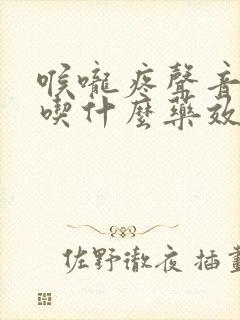 喉嚨疼聲音
喫什麼藥效
佐野徹夜 插畫